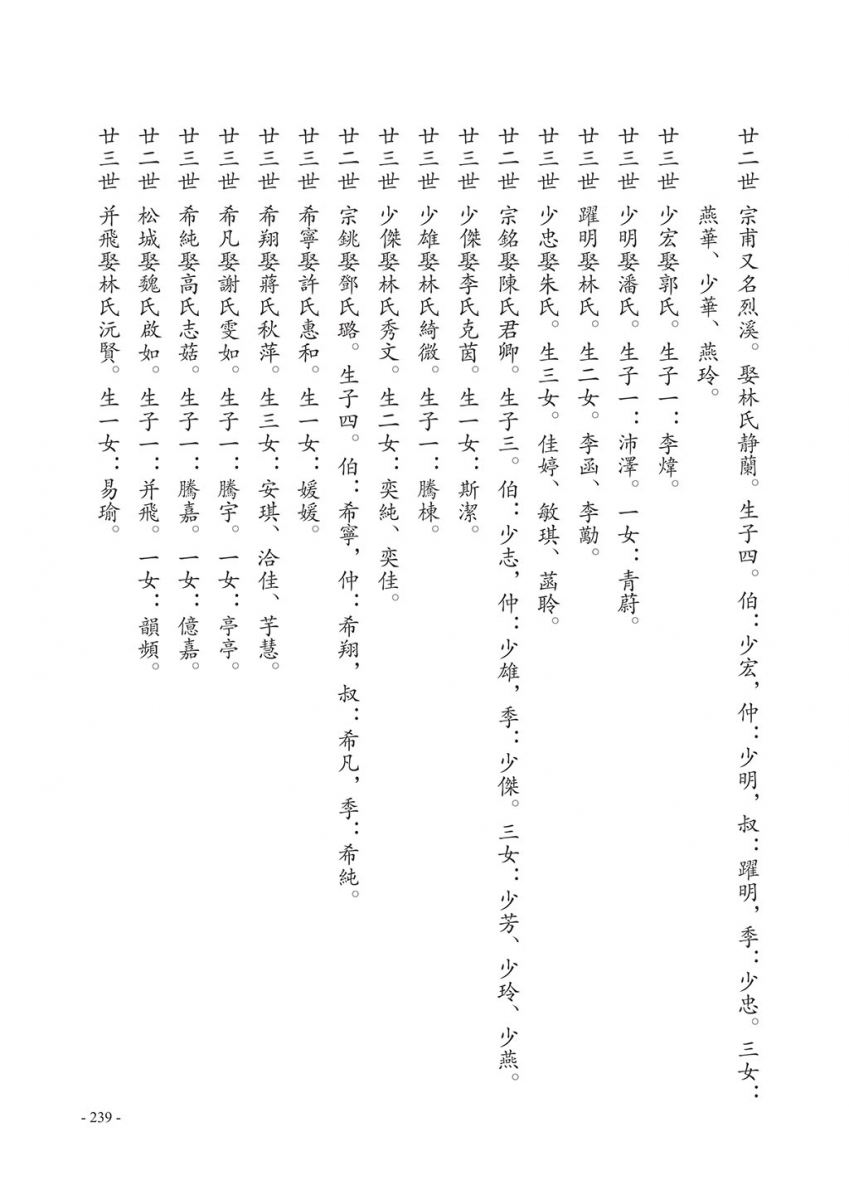 廿二世 宗甫又名烈溪。娶林氏静蘭。生子四。伯：少宏，仲：少明，叔：躍明，季：少忠。三女：
燕華、少華、燕玲。
廿三世 少宏娶郭氏。生子一：李煒。
廿三世 少明娶潘氏。生子一：沛澤。一女：青蔚。
廿三世 躍明娶林氏。生二女。李函、李勱。
廿三世 少忠娶朱氏。生三女。佳婷、敏琪、菡聆。
廿二世 宗銘娶陳氏君卿。生子三。伯：少志，仲：少雄，季：少傑。三女：少芳、少玲、少燕。
廿三世 少傑娶李氏克茵。生一女：斯潔。
廿三世 少雄娶林氏綺微。生子一：騰棟。
廿三世 少傑娶林氏秀文。生二女：奕純、奕佳。
廿二世 宗銚娶鄧氏璐。生子四。伯：希寧，仲：希翔，叔：希凡，季：希純。
廿三世 希寧娶許氏惠和。生一女：媛媛。
廿三世 希翔娶蔣氏秋萍。生三女：安琪、洽佳、芋慧。
廿三世 希凡娶謝氏雯如。生子一：騰宇。一女：亭亭。
廿三世 希純娶高氏志菇。生子一：騰嘉。一女：億嘉。
廿二世 松城娶魏氏啟如。生子一：并飛。一女：韻頻。
廿三世 并飛娶林氏沅賢。生一女：易瑜。
- 239 -